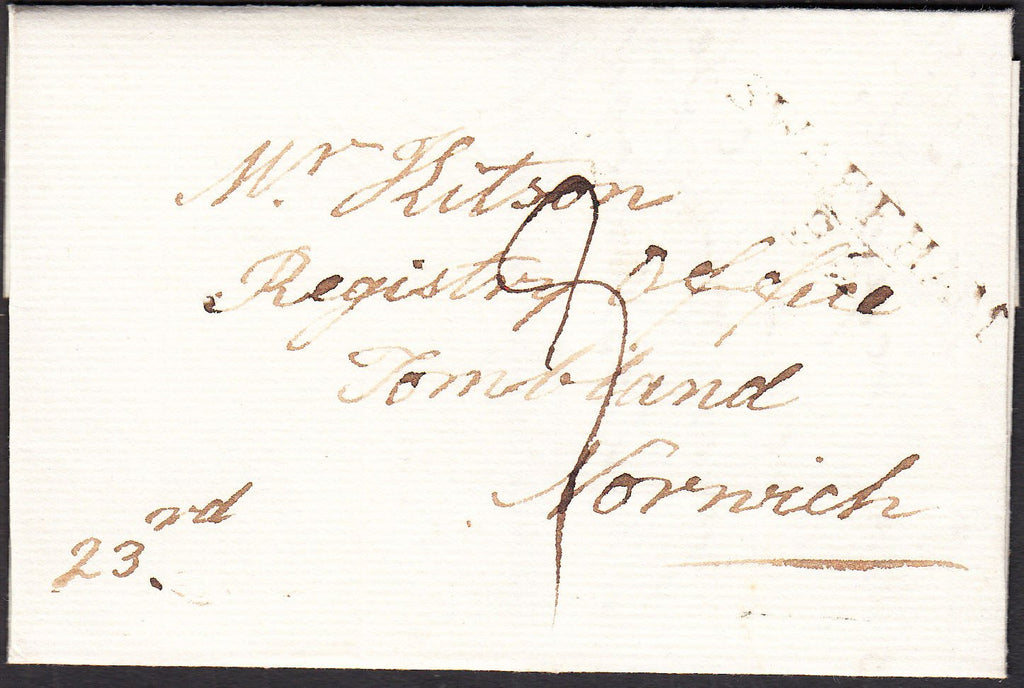 Mr. Kitson
Registry Office
Tombland
Norwich
23rd.